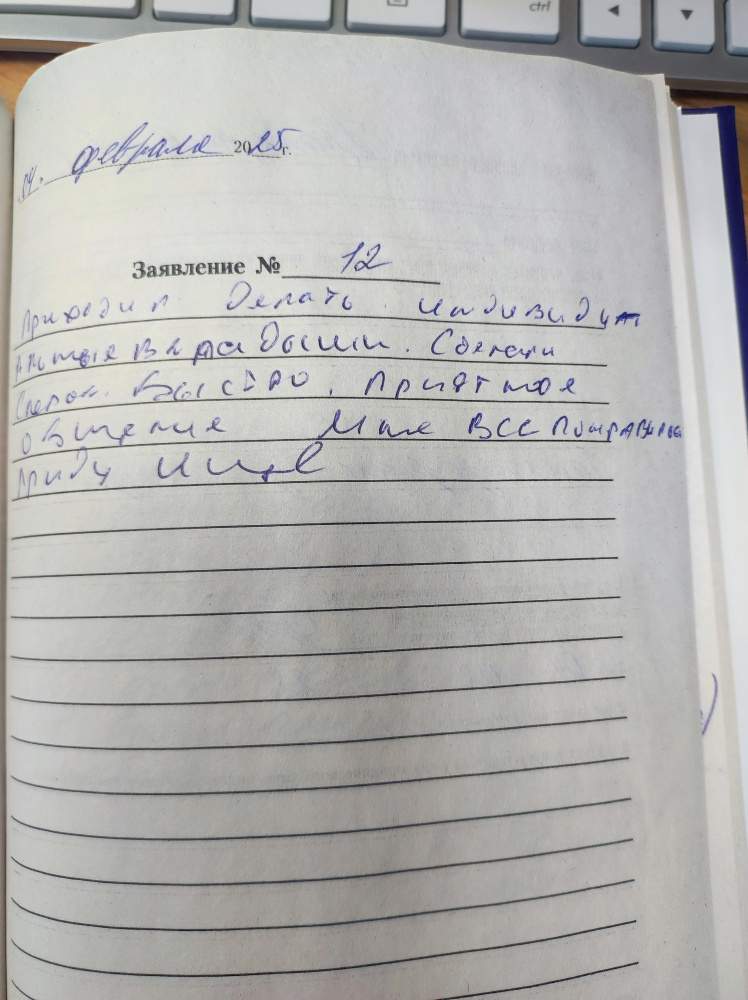 14. февраля 2025г.
Заявление № 12
Приходил делать индивиду
альные вкладыши. Сделали
слепок. Быстро. Приятное
общение Мне все понравилось
приду ещё
ctrl